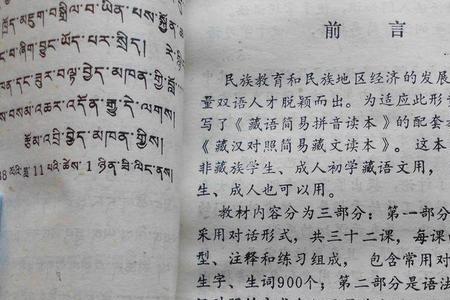 ཡོད་མདུག་བསྒྲིལ་བ་ཡིན་པས་སྐྱོན་ཆ
བ་ཞིག་བྱུང་ཡོད་པར་སྲིད།
དང་ཟུར་བལྟ་བྱེད་མཁན་གྱི་བློ་
བསམ་འཆར་འདོན་རྒྱུ་དེ་ལགས།
རྩོམ་འབྲི་བྱེད་མཁན་གྱིས།
11 པའི་ཚེས་ 1 ཉིན་བྲིས།
前言
民族教育和民族地区经济的发展
量双语人才脱颖而出。为适应此形
写了《藏语简易拼音读本》的配套
《藏汉对照简易藏文读本》。这本
非藏族学生、成人初学藏语文用,
生、成人也可以用。
教材内容分为三部分:第一部分
采用对话形式,共三十二课,每课
型、注释和练习组成,包含常用对
生字、生词900个;第二部分是语法